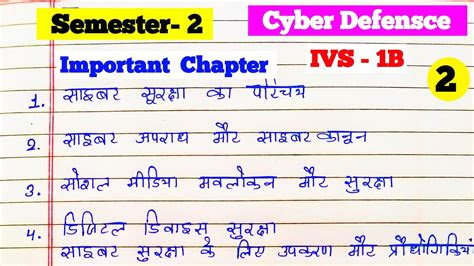 Semester- 2
Cyber Defensce
Important Chapter
IVS - 1B
2
1. साइबर सूरक्षा का परिचत्र
2. साइबर अपराध मौर साइबर कानून
3. सोशल मीडिया मवलोकन मौर सुरक्षा
4. डिजिटल डिवाइस सुरक्षा
साइबर सुरक्षा के लिए उपकरण मौर प्रौद्योगिकियां